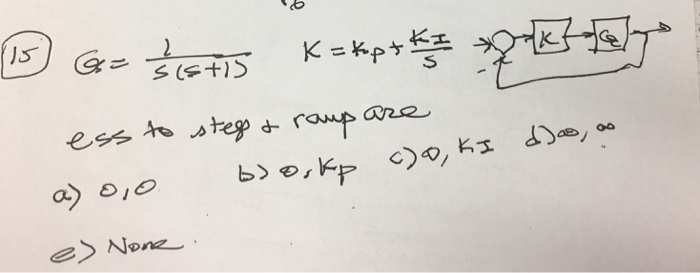 15 G = 1 / s(s+1) K = Kp + KI / s K G
ess to step & ramp are
a) 0,0 b) 0, Kp c) 0, KI d) ∞, ∞
e) None.